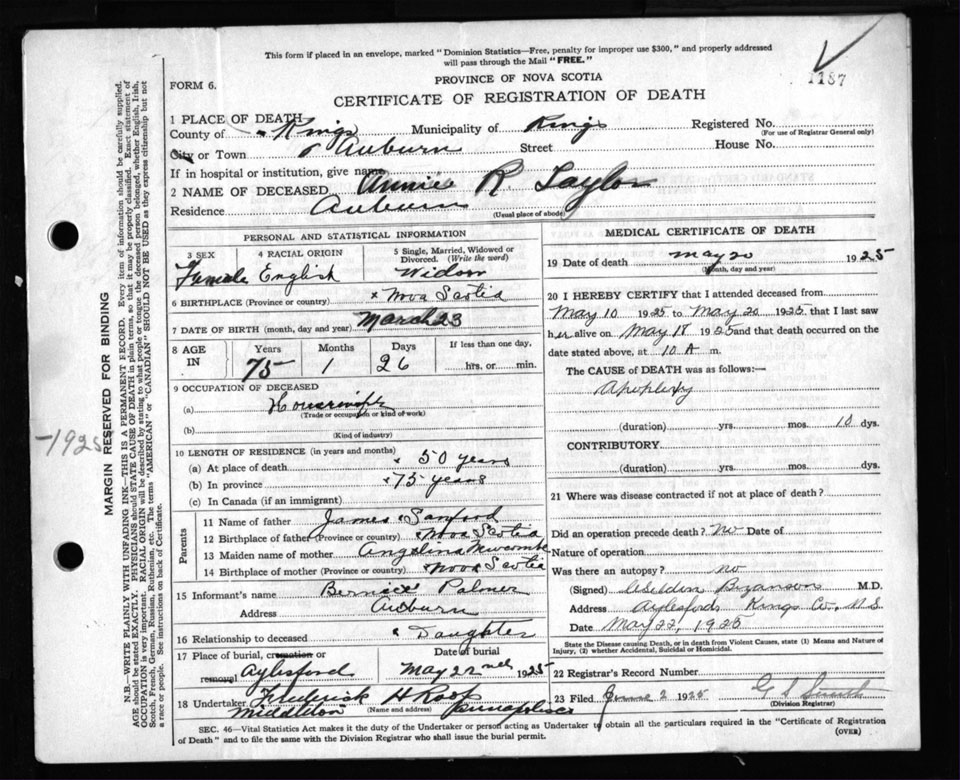 This form if placed in an envelope, marked "Dominion Statistics—Free, penalty for improper use $300," and properly addressed
will pass through the Mail "FREE."
1187
PROVINCE OF NOVA SCOTIA
FORM 6.
CERTIFICATE OF REGISTRATION OF DEATH
1 PLACE OF DEATH
County of Kings Municipality of Kings Registered No.
(For use of Registrar General only)
City or Town Auburn Street House No.
If in hospital or institution, give name
2 NAME OF DECEASED Annie R Taylor
Residence Auburn
(Usual place of abode)
PERSONAL AND STATISTICAL INFORMATION
3 SEX 4 RACIAL ORIGIN 5 Single, Married, Widowed or
Divorced. (Write the word)
Female English Widow
6 BIRTHPLACE (Province or country) Nova Scotia
7 DATE OF BIRTH (month, day and year) March 23
8 AGE IN Years Months Days If less than one day.
75 1 26 hrs. or min.
9 OCCUPATION OF DECEASED
(a) Housewife
(Trade or occupation or kind of work)
(b)
(Kind of industry)
10 LENGTH OF RESIDENCE (in years and months)
(a) At place of death 50 years
(b) In province 75 years
(c) In Canada (if an immigrant)
Parents
11 Name of father James Sanford
12 Birthplace of father (Province or country) Nova Scotia
13 Maiden name of mother Angelina Newcombe
14 Birthplace of mother (Province or country) Nova Scotia
15 Informant's name Bernice Palmer
Address Auburn
16 Relationship to deceased Daughter
17 Place of burial, cremation or Date of burial
removal Aylesford May 22nd 1925
18 Undertaker Frederick H Roop
Middleton (Name and address) Annapolis
MEDICAL CERTIFICATE OF DEATH
19 Date of death May 20 1925
(Month, day and year)
20 I HEREBY CERTIFY that I attended deceased from
May 10 1925 to May 20 1925 that I last saw
her alive on May 18 1925 and that death occurred on
date stated above, at 10 A m.
The CAUSE of DEATH was as follows:
Apoplexy
(duration) yrs. mos. 10 dys.
CONTRIBUTORY
(duration) yrs. mos. dys.
21 Where was disease contracted if not at place of death?
Did an operation precede death? No Date of
Nature of operation
Was there an autopsy? no
(Signed) M.D.
Address Aylesford, Kings Co., N.S
Date May 22, 1925
State the Disease causing Death, or in death from Violent Causes, state (1) Means and Nature of
Injury, (2) whether Accidental, Suicidal or Homicidal.
22 Registrar's Record Number
23 Filed June 2 1925 G S Smith
(Division Registrar)
SEC. 46—Vital Statistics Act makes it the duty of the Undertaker or person acting as Undertaker to obtain all the particulars required in the "Certificate of Registration
of Death" and to file the same with the Division Registrar who shall issue the burial permit.
(OVER)
-1925
MARGIN RESERVED FOR BINDING
N.B.—WRITE PLAINLY WITH UNFADING INK—THIS IS A PERMANENT RECORD. Every item of information should be carefully supplied.
AGE should be stated EXACTLY. PHYSICIANS should STATE CAUSE OF DEATH in plain terms, so that it may be properly classified. Exact statement of
OCCUPATION is very important. RACIAL ORIGIN will be described by stating to what people or tongue the deceased person belonged, whether English, Irish,
Scotch, French, German, Russian, Ruthenian, etc. The terms "AMERICAN" or "CANADIAN" SHOULD NOT BE USED as they express citizenship but not
a race or people. See instructions on back of Certificate.